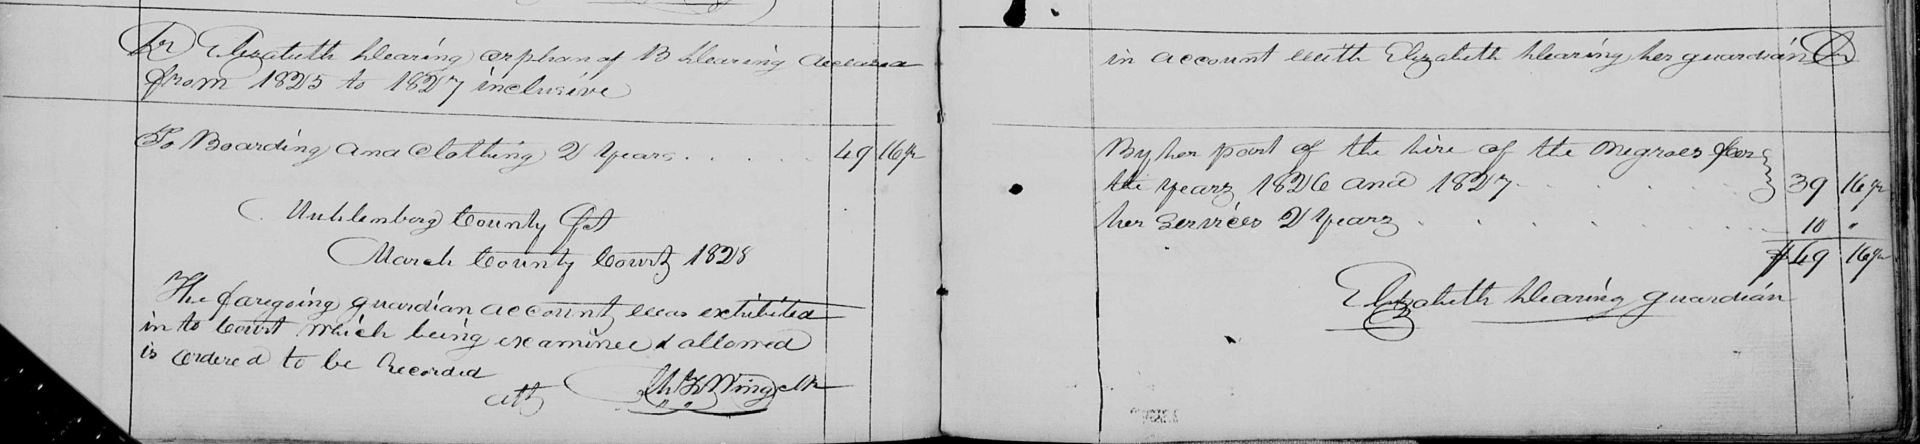 Dr Elizabeth Dearing orphan of B Dearing deceased
from 1825 to 1827 inclusive
To Boarding and Clothing 2 Years . . . . . 49 16¾
Muhlenberg County Sct
March County Court 1828
The foregoing guardian account was exhibited
in to Court which being examined & allowed
is ordered to be Recorded
att Wing Clk
in account with Elizabeth Dearing her guardian Cr
By her part of the hire of the Negroes for
the years 1826 and 1827 . . . . . 39 16¾
her Services 2 Years . . . . . . 10 "
$49 16¾
Elizabeth Dearing guardian